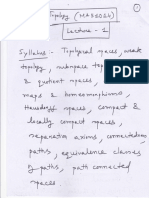 Topology (MA5024)
Lecture - 1
Syllabus - Topological spaces, weak
topology, subspace topology, product
& quotient spaces,
maps & homeomorphisms,
Hausdorff spaces, compact &
locally compact spaces,
separation axioms, connectedness
paths, equivalence classes
of paths, path connected
spaces.